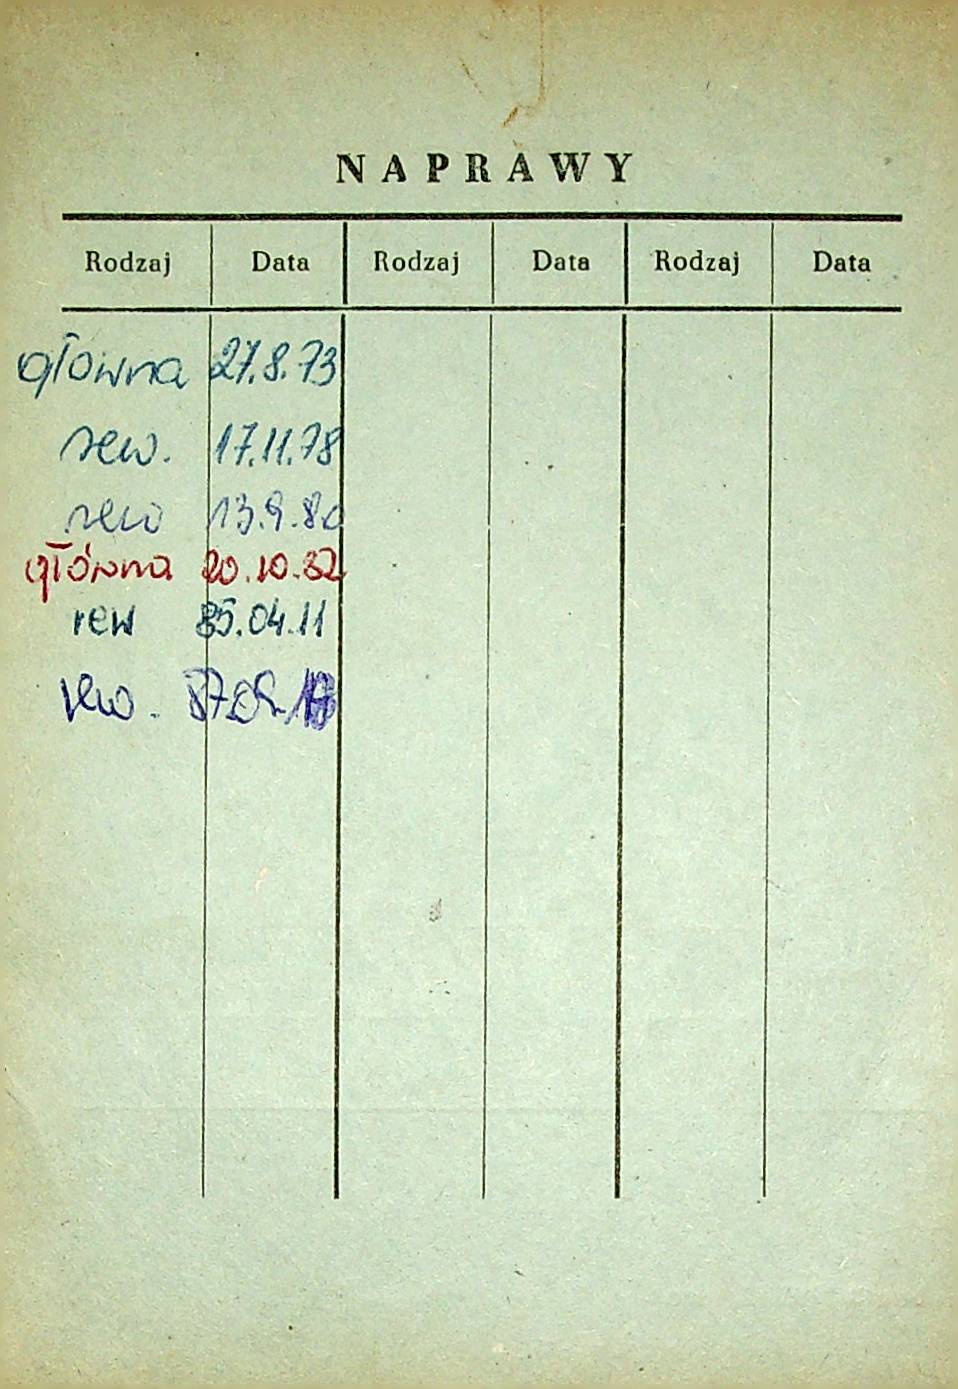 NAPRAWY
Rodzaj Data Rodzaj Data Rodzaj Data
główna 27.8.73
rew. 17.11.78
rew 13.9.80
główna 20.10.82
rew 85.04.11
rew.